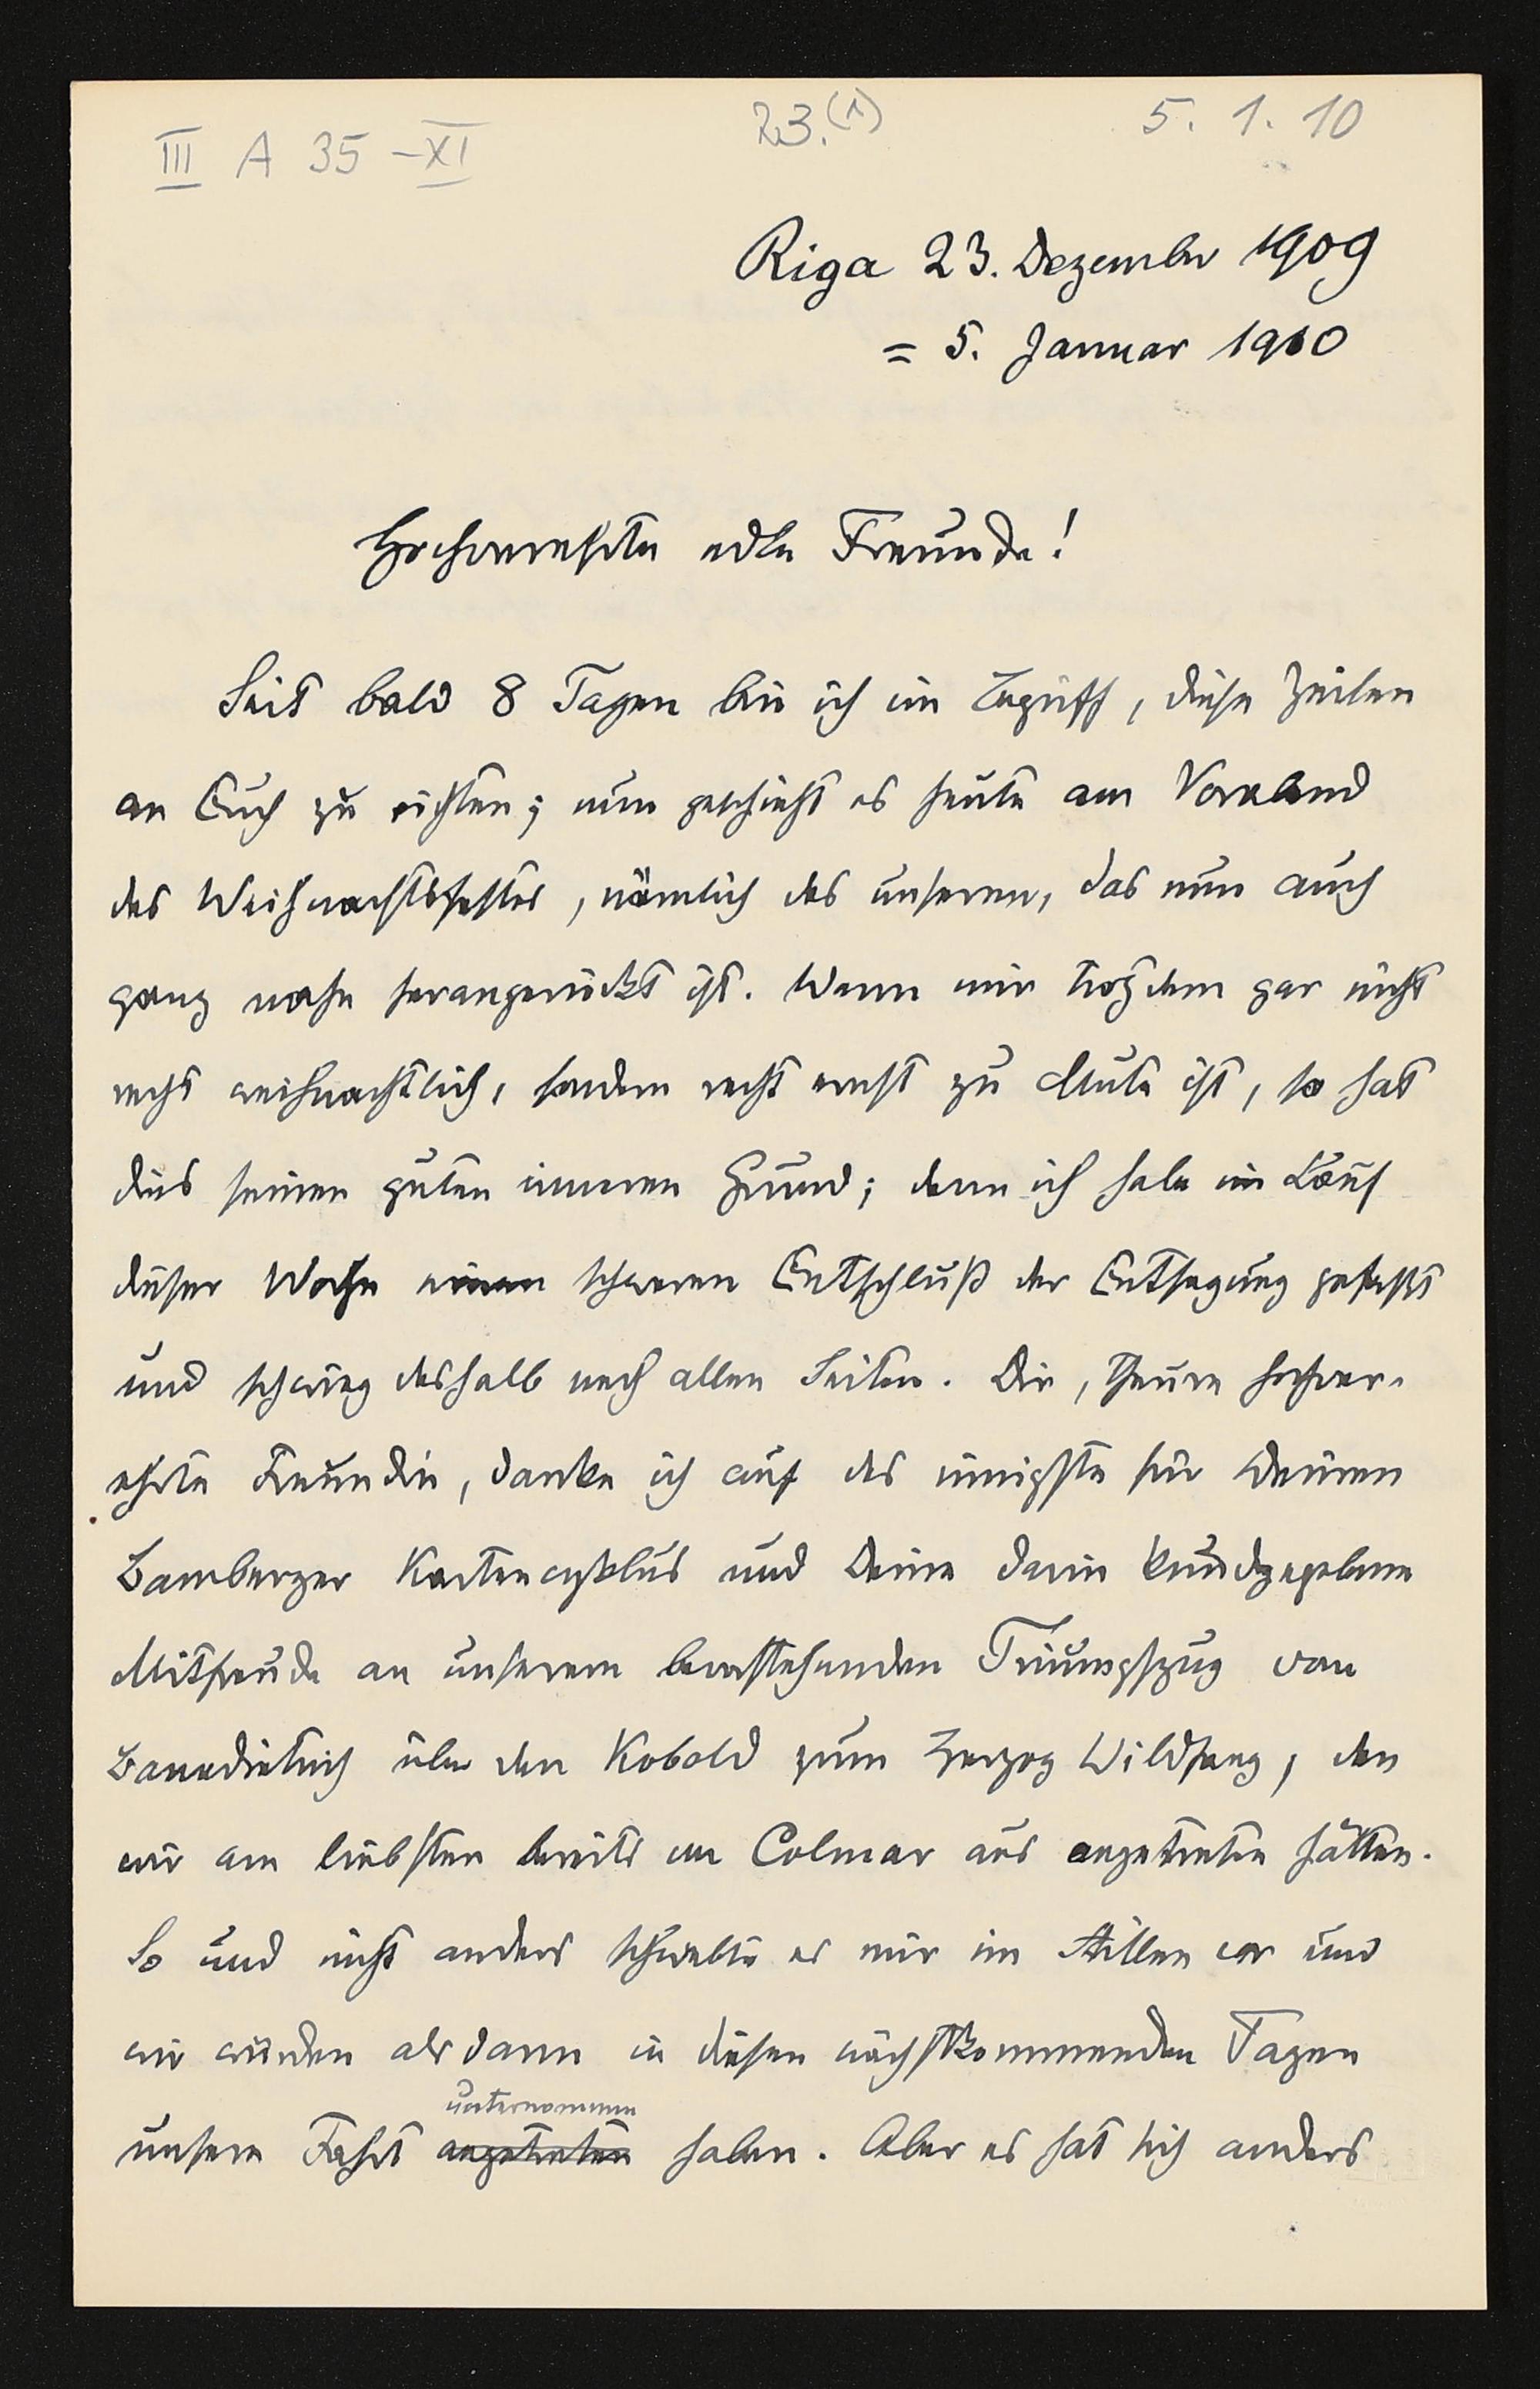 III A 35 – XI
23.(1)
5. 1. 10
Riga 23. Dezember 1909
= 5. Januar 1910
Hochverehrte edle Freunde!
Seit bald 8 Tagen bin ich im Begriff, diese Zeilen
an Euch zu richten; nun geschieht es heute am Vorabend
des Weihnachtsfestes, nämlich des unseren, das nun auch
ganz nahe herangerückt ist. Wenn mir trotzdem gar nicht
recht weihnachtlich, sondern recht ernst zu Mute ist, so hat
dies seinen guten inneren Grund; denn ich habe im Lauf
dieser Woche einen schweren Entschluß der Entsagung gefaßt
und schwieg deshalb nach allen Seiten. Dir, theure hochver-
ehrte Freundin, danke ich auf das innigste für Deinen
Bamberger Kartencyklus und Deine darin kundgegebene
Mitfreude an unserem bevorstehenden Triumpfzug von
Banadietrich über den Kobold zum Herzog Wildfang, den
wir am liebsten bereits von Colmar aus angetreten hätten.
So und nicht anders schwebte es mir im Stillen vor und
wir würden alsdann in diesen nächstkommenden Tagen
unternommen
unsere Fahrt angetreten haben. Aber es hat sich anders